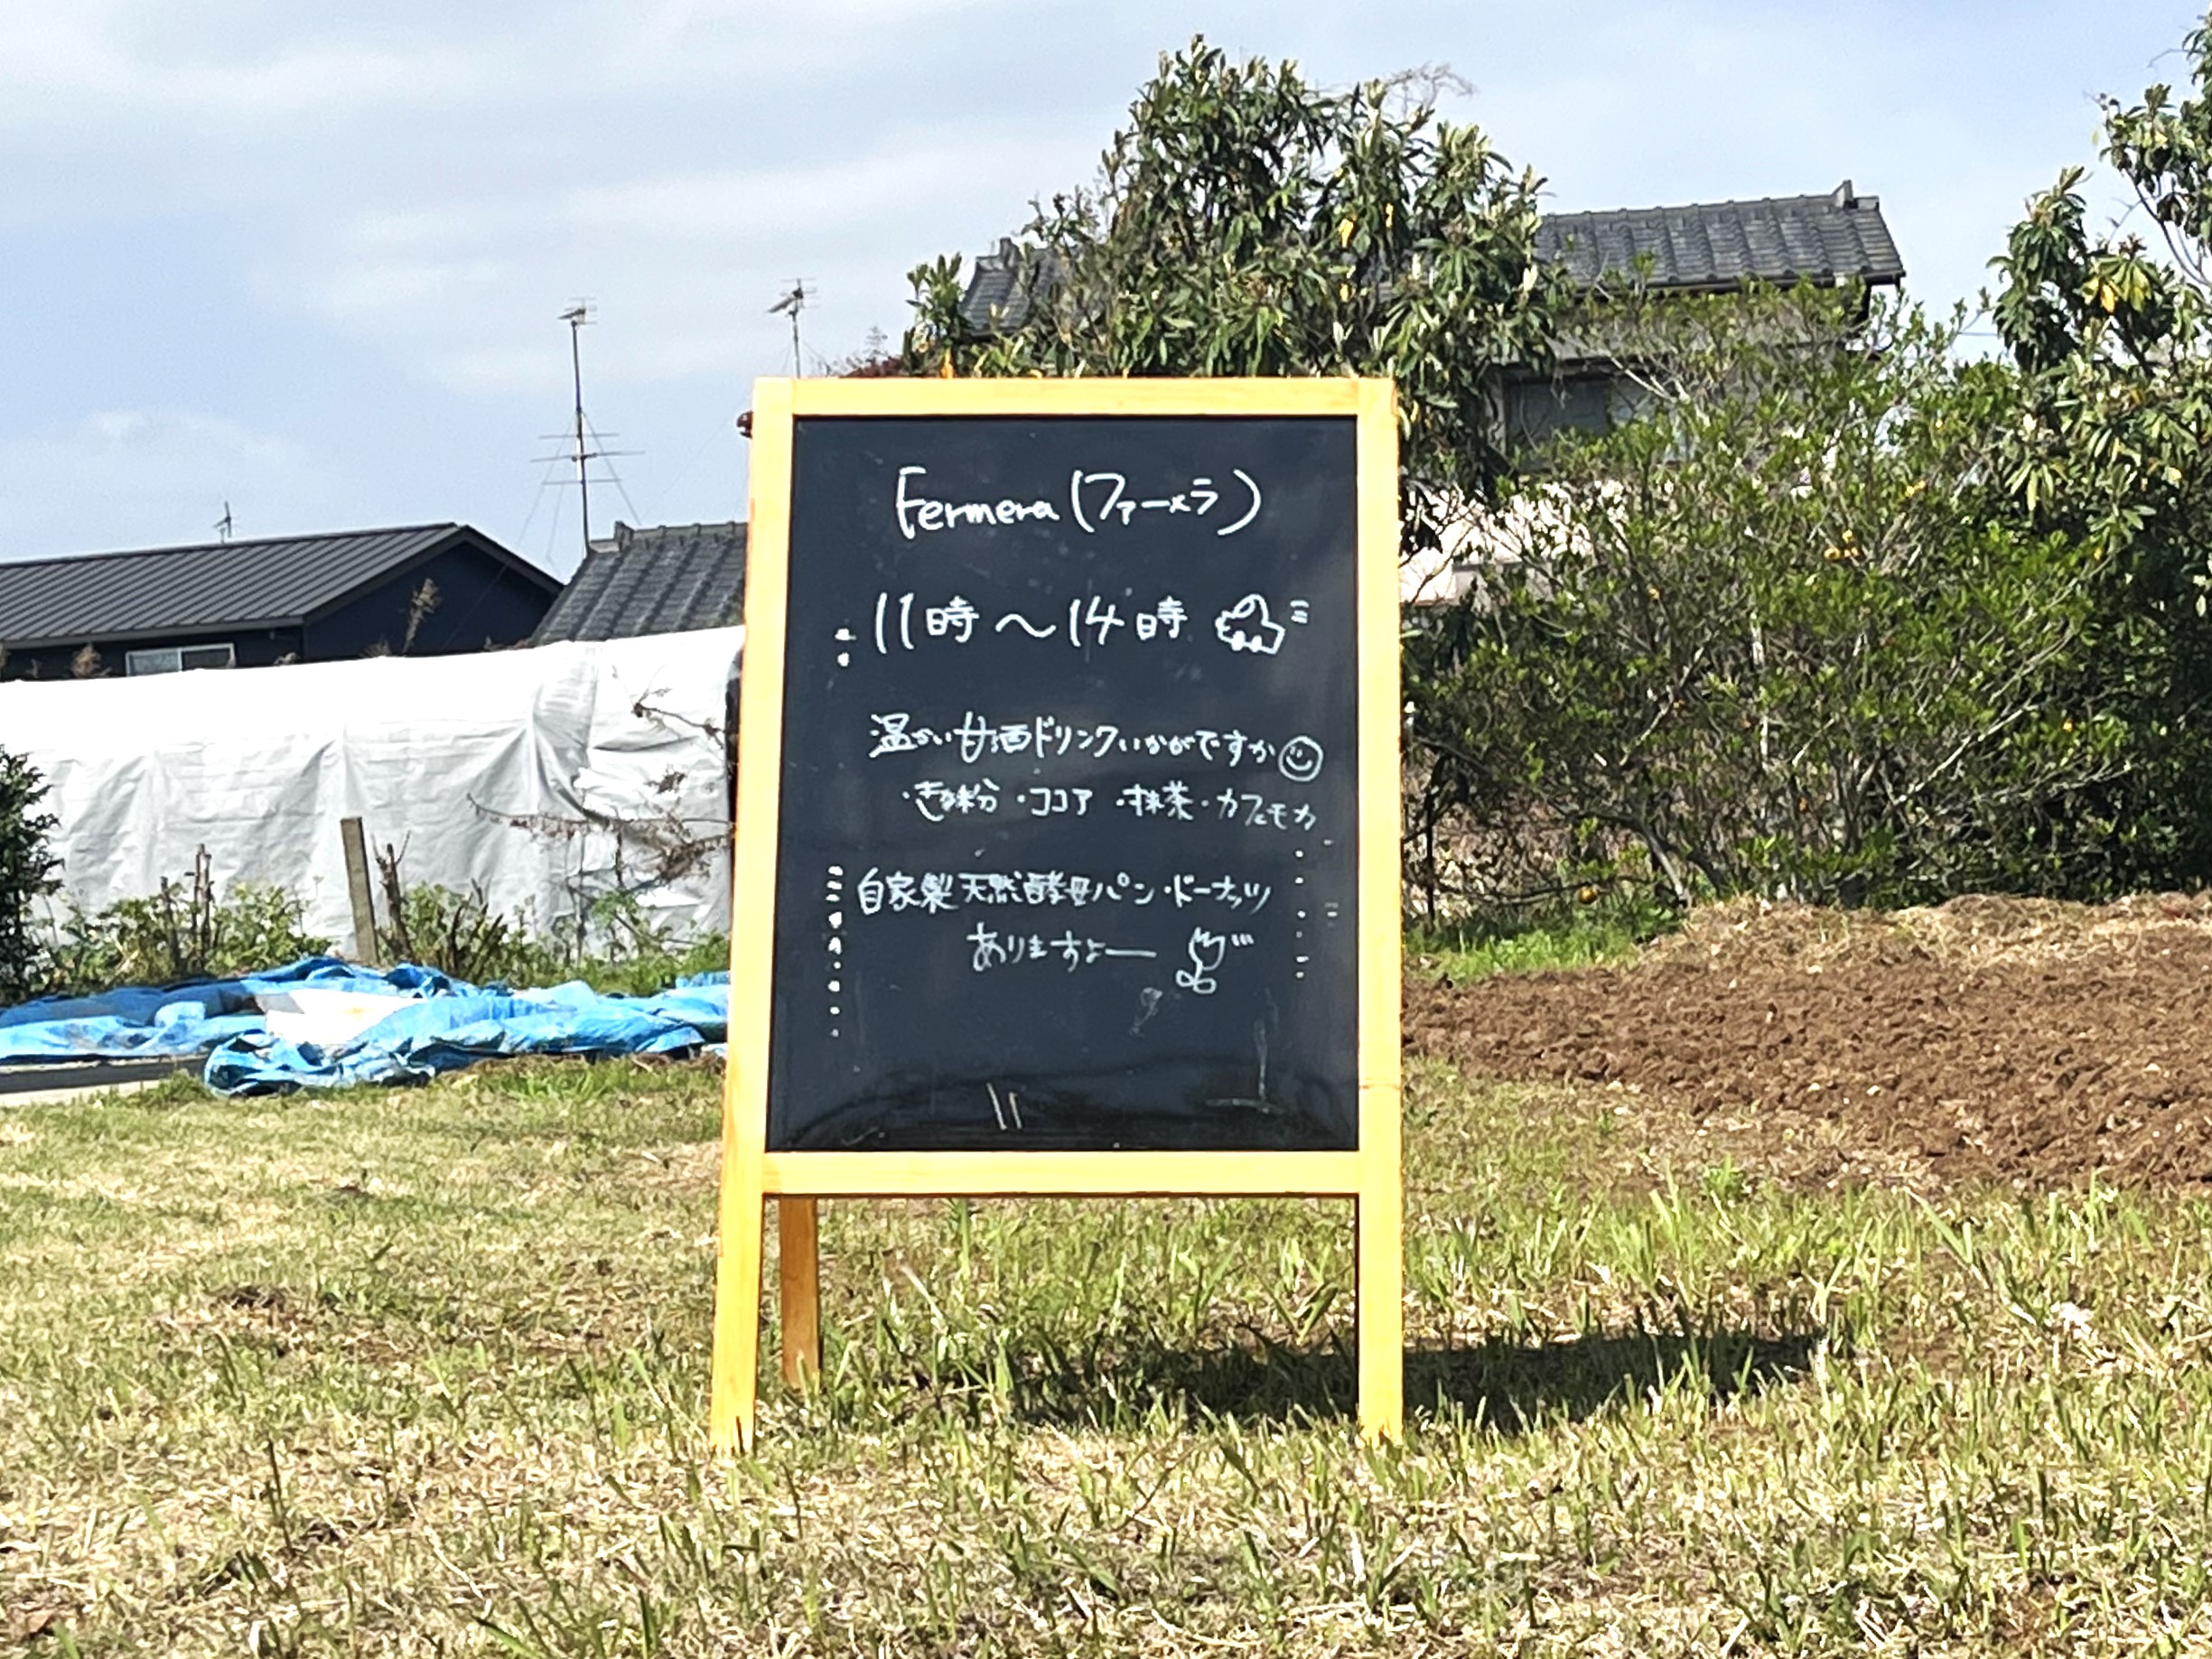 Fermera(ファーメラ)
11時～14時
温かい甘酒ドリンクいかがですか
・きな粉・ココア・抹茶・カフェモカ
自家製天然酵母パン・ドーナッツ
ありますよー